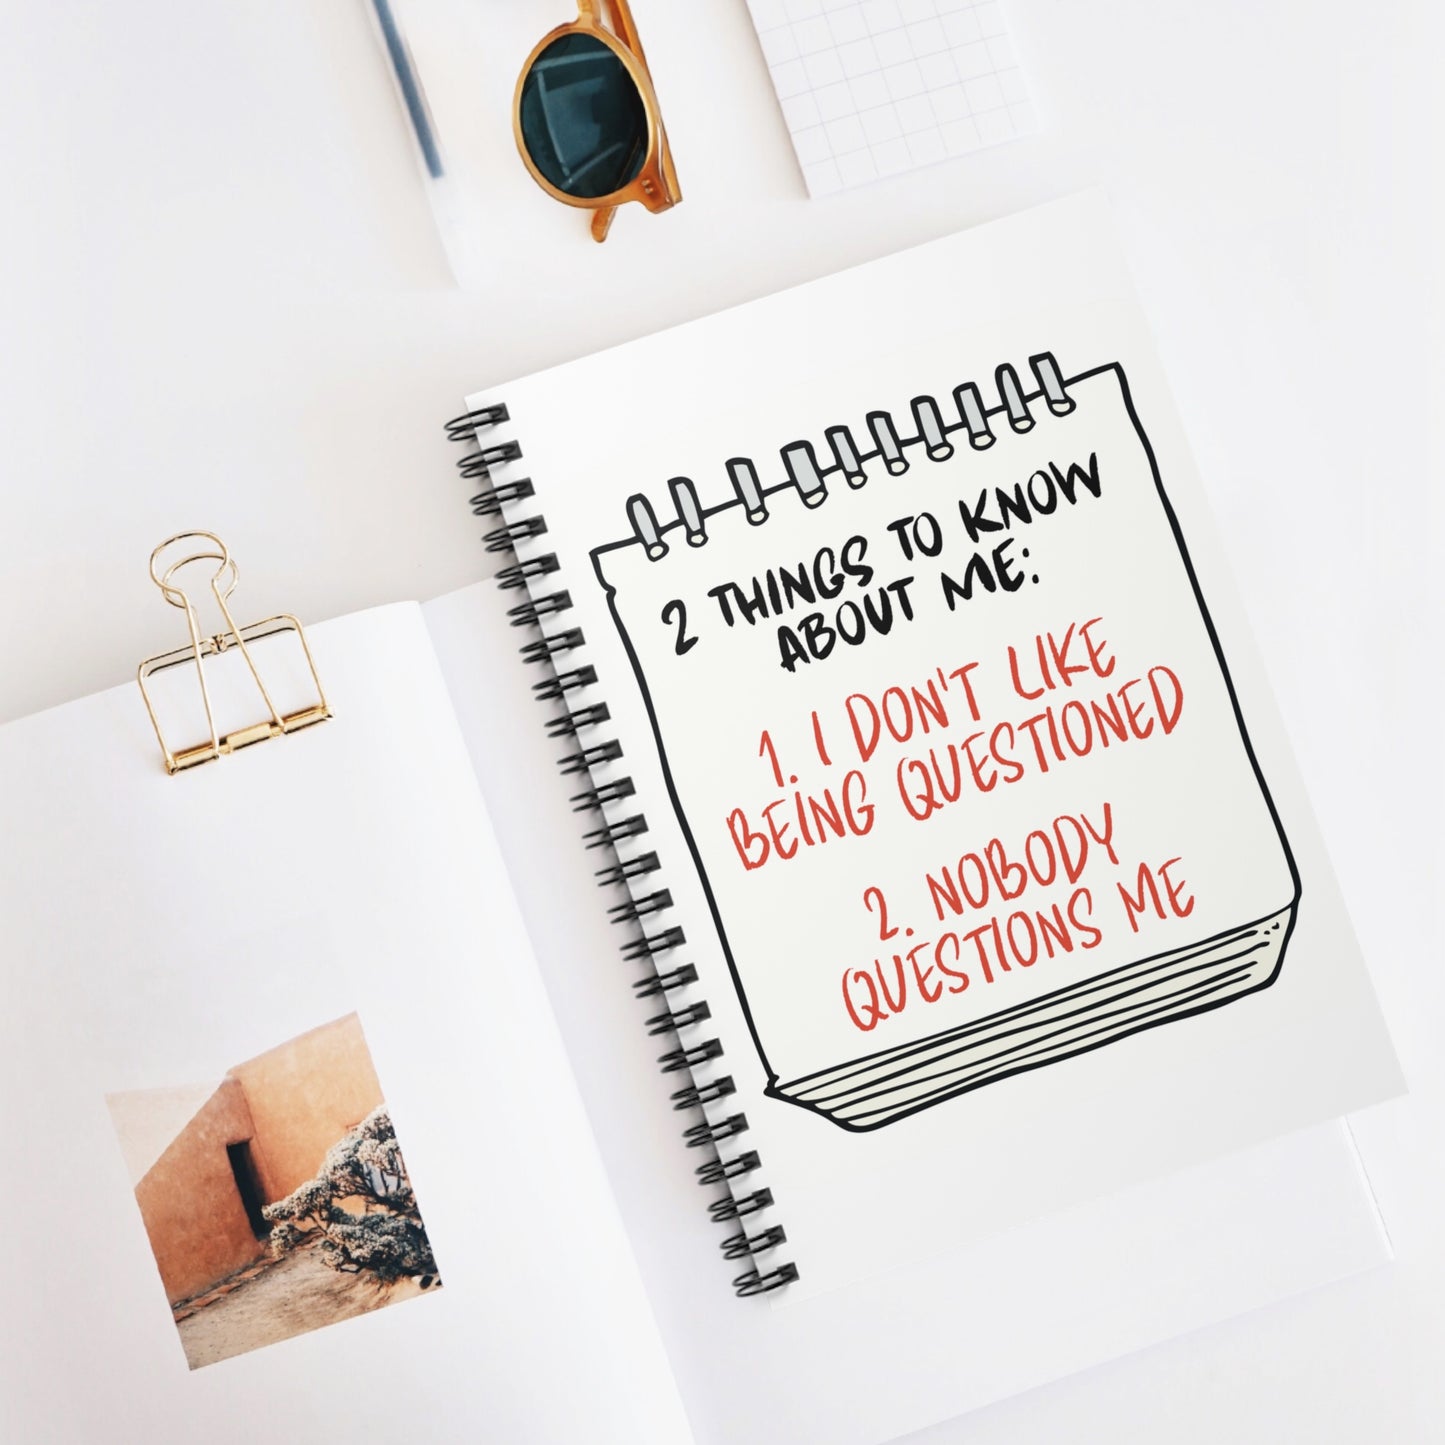 2 THINGS TO KNOW
ABOUT ME:
1. I DON'T LIKE
BEING QUESTIONED
2. NOBODY
QUESTIONS ME